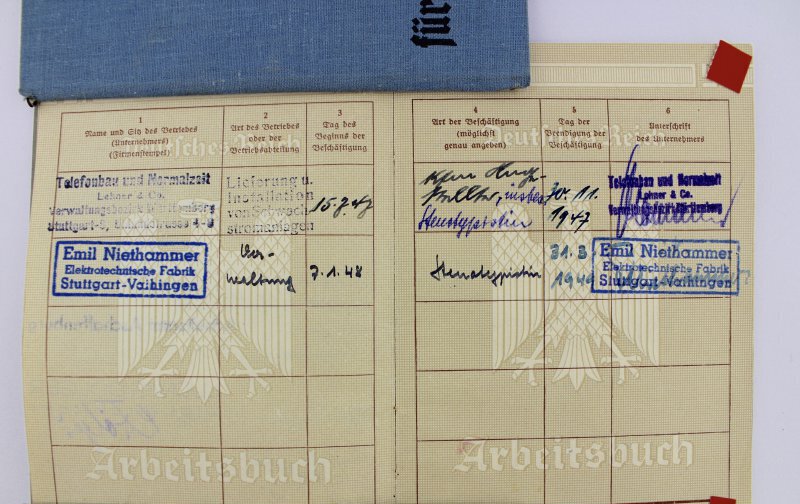 für
1
Name und Sitz des Betriebes
(Unternehmers)
(Firmenstempel)
2
Art des Betriebes
oder der
Betriebsabteilung
3
Tag des
Beginns der
Beschäftigung
4
Art der Beschäftigung
(möglichst
genau angeben)
5
Tag der
Beendigung der
Beschäftigung
6
Unterschrift
des Unternehmers
Deutsches Reich
Deutsches Reich
Telefonbau und Normalzeit
Lehner & Co.
Verwaltungsbezirk Württemberg
Stuttgart-S,
Lieferung u.
Installation
von Schwach-
stromanlagen
15.7.47
Stenotypistin
30.11.
1947
Telefonbau und Normalzeit
Lehner & Co.
Verwaltungsbezirk Württemberg
Emil Niethammer
Elektrotechnische Fabrik
Stuttgart-Vaihingen
Ver-
waltung
7.1.48
Stenotypistin
31.3
Emil Niethammer
Elektrotechnische Fabrik
Stuttgart-Vaihingen
Arbeitsbuch
Arbeitsbuch